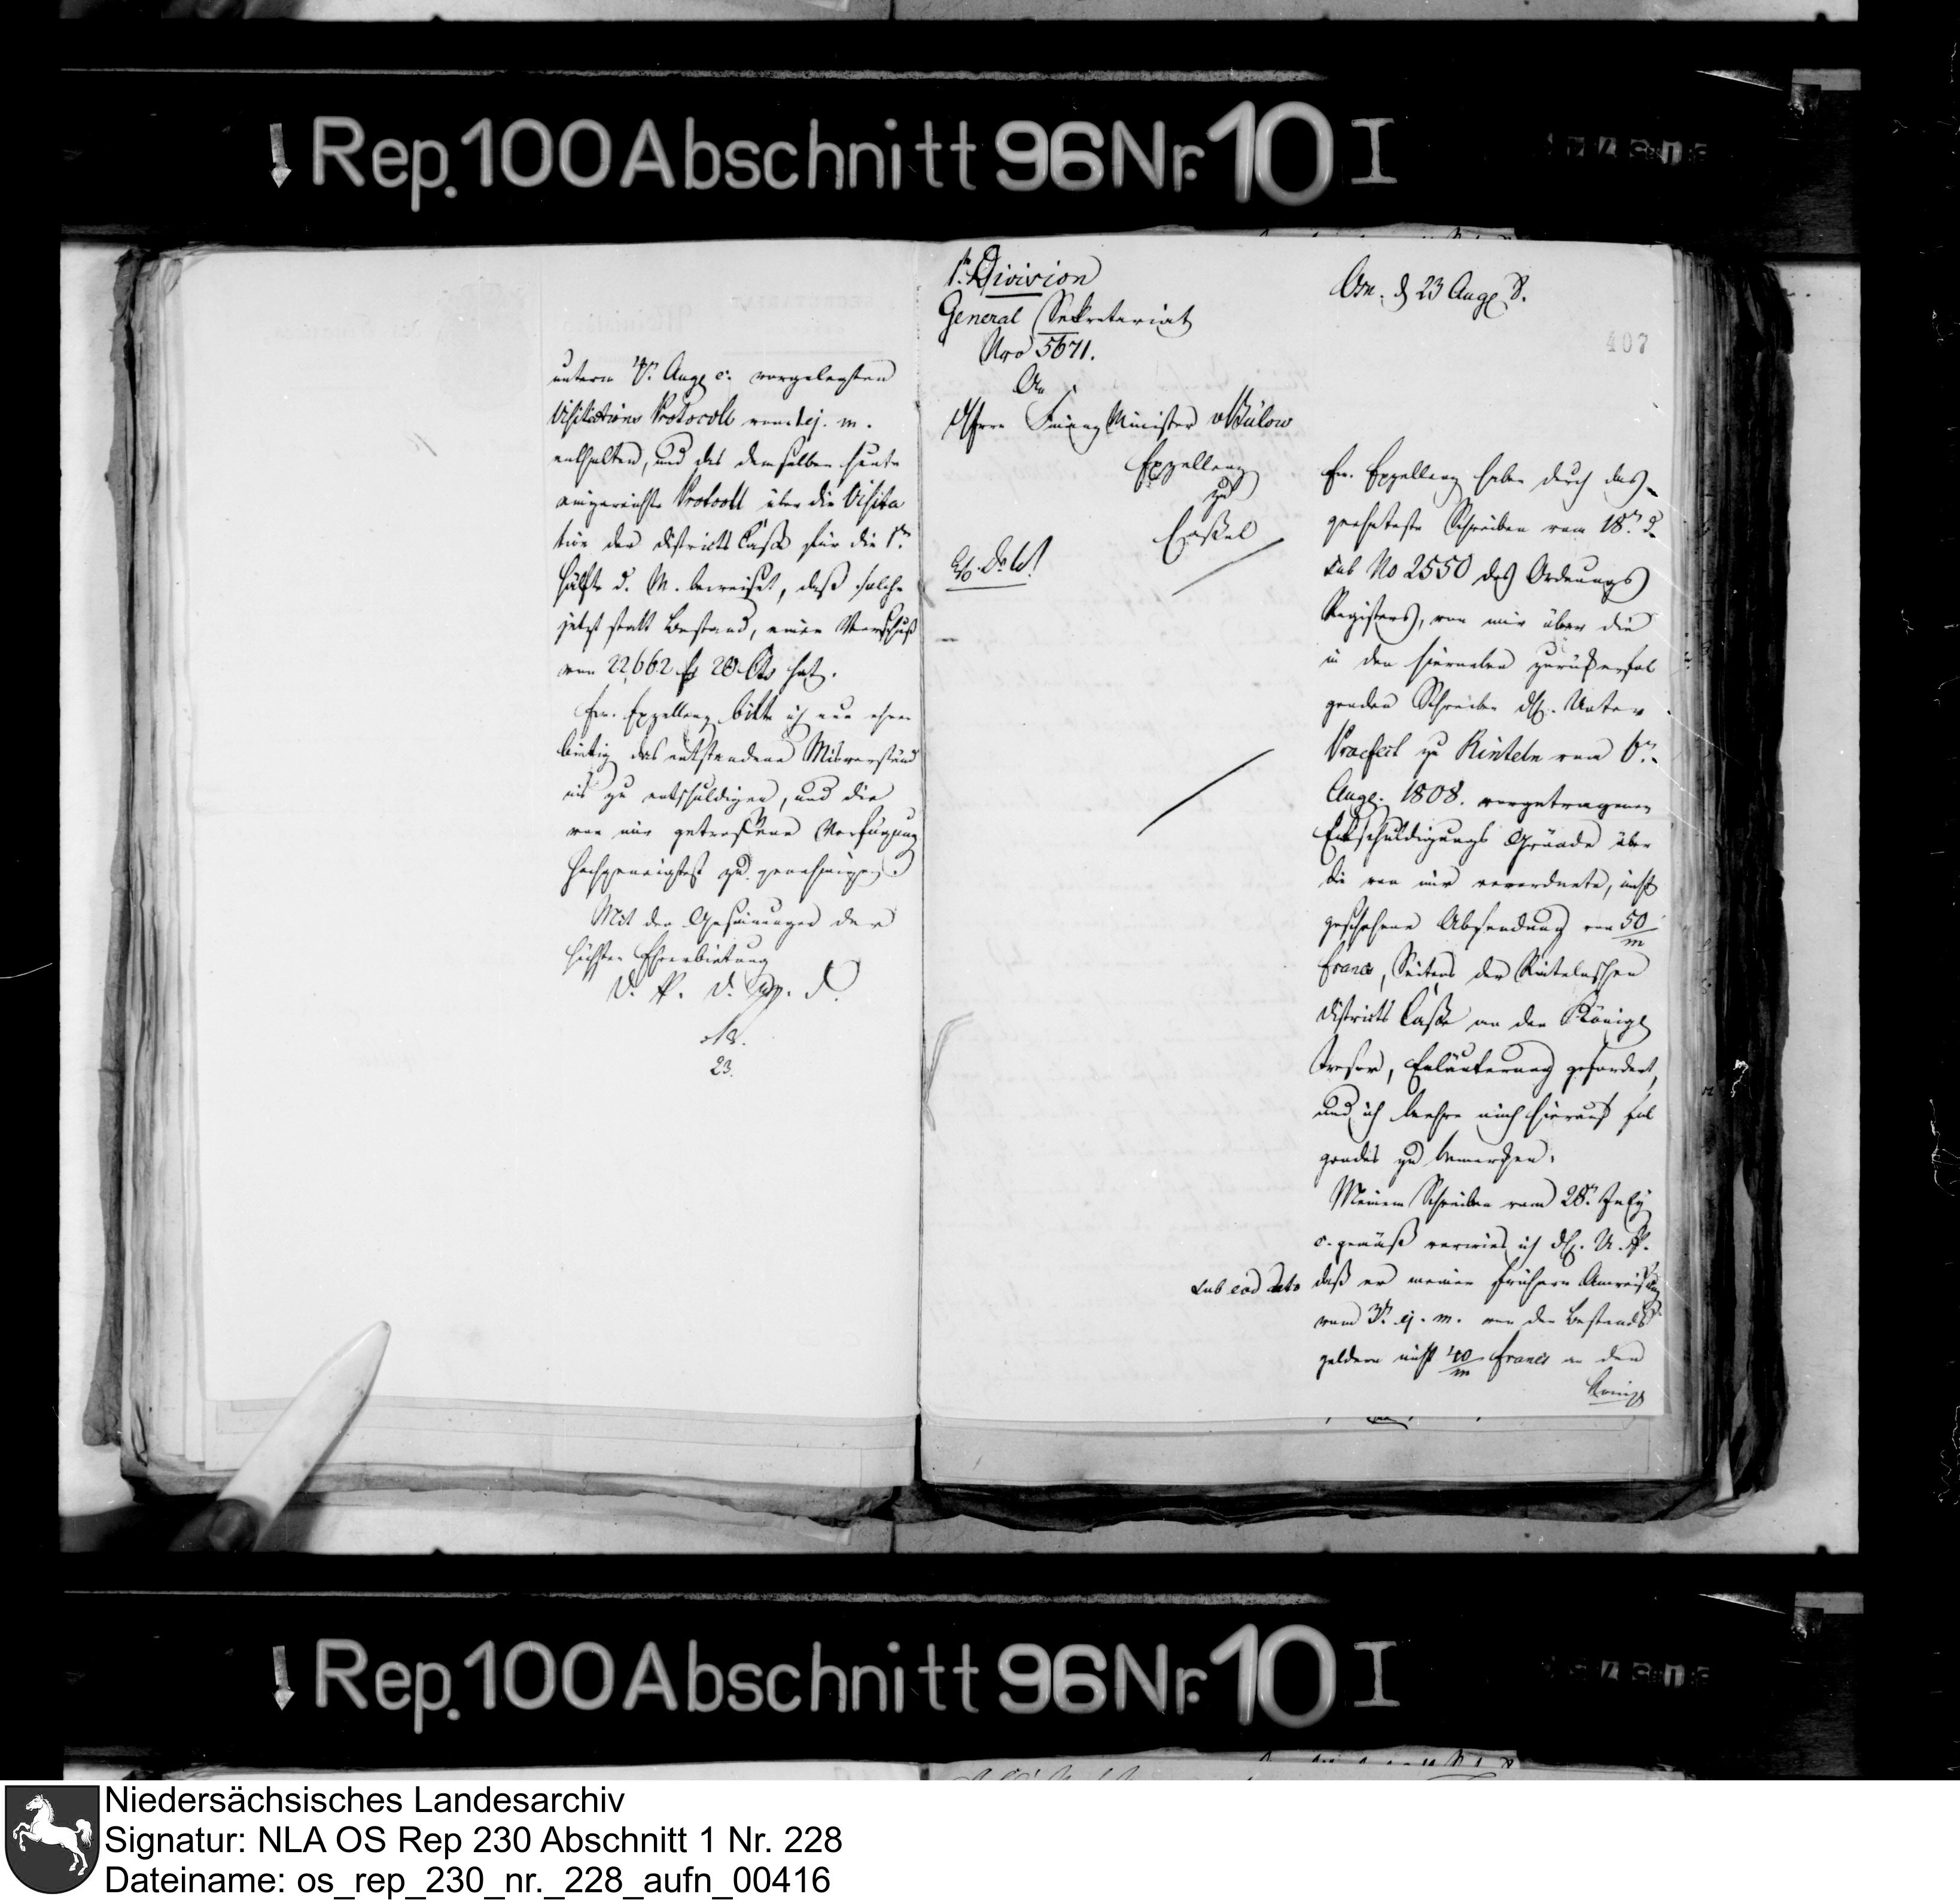 Rep. 100 Abschnitt 96 Nr. 10 I
unterm 4n. Aug c. vorgelegten
Visitations Protocoll vom ej. m.
enthalten, und das demselben heute
eingereichte Protocoll über die Visita
tion der Districts Casse für die 1te
Hälfte d. M. beweiset, daß solche
jetzt statt Bestand, einen Vorschuß
von 22,662 fr 28 Cts hat.
Ew. Exzellenz bitte ich nun ehrer
bietig das entstandene Misverständ
nis zu entschuldigen, und die
von mir getroffene Verfügung
hochgeneigtest zu genehmigen.
Mit den Gesinnungen der
höchsten Ehrerbietung
D. P. d. W. D.
23.
1te Division
General Sekretariat
Nro 5671.
An
Herrn Finanz Minister v Bülow
Exzellenz
zu
Cassel
Osn. d 23 Aug 8.
407
Ew. Exzellenz haben durch das
geehrteste Schreiben vom 18n d.
sub No 2550 des Ordnungs
Registers, von mir über die
in den hierneben zurückerfol
genden Schreiben des H. Unter
Praefect zu Rinteln vom 6n
Aug. 1808. vorgetragenen
Entschuldigungs Gründe über
die von mir verordnete, nicht
geschehene Absendung von 50/m
francs, Seitens der Rintelnschen
Districts Casse an den Königl
Tresor, Erläuterung gefordert,
und ich beehre mich hierauf fol
gendes zu bemerken:
Meinem Schreiben vom 28n July
c. gemäß verwies ich H. U. P.
sub eod dato
daß er meiner frühern Anweisung
vom 3n ej. m. von den Bestands
geldern nicht 40/m francs an den
Königl
Rep. 100 Abschnitt 96 Nr. 10 I
Niedersächsisches Landesarchiv
Signatur: NLA OS Rep 230 Abschnitt 1 Nr. 228
Dateiname: os_rep_230_nr._228_aufn_00416